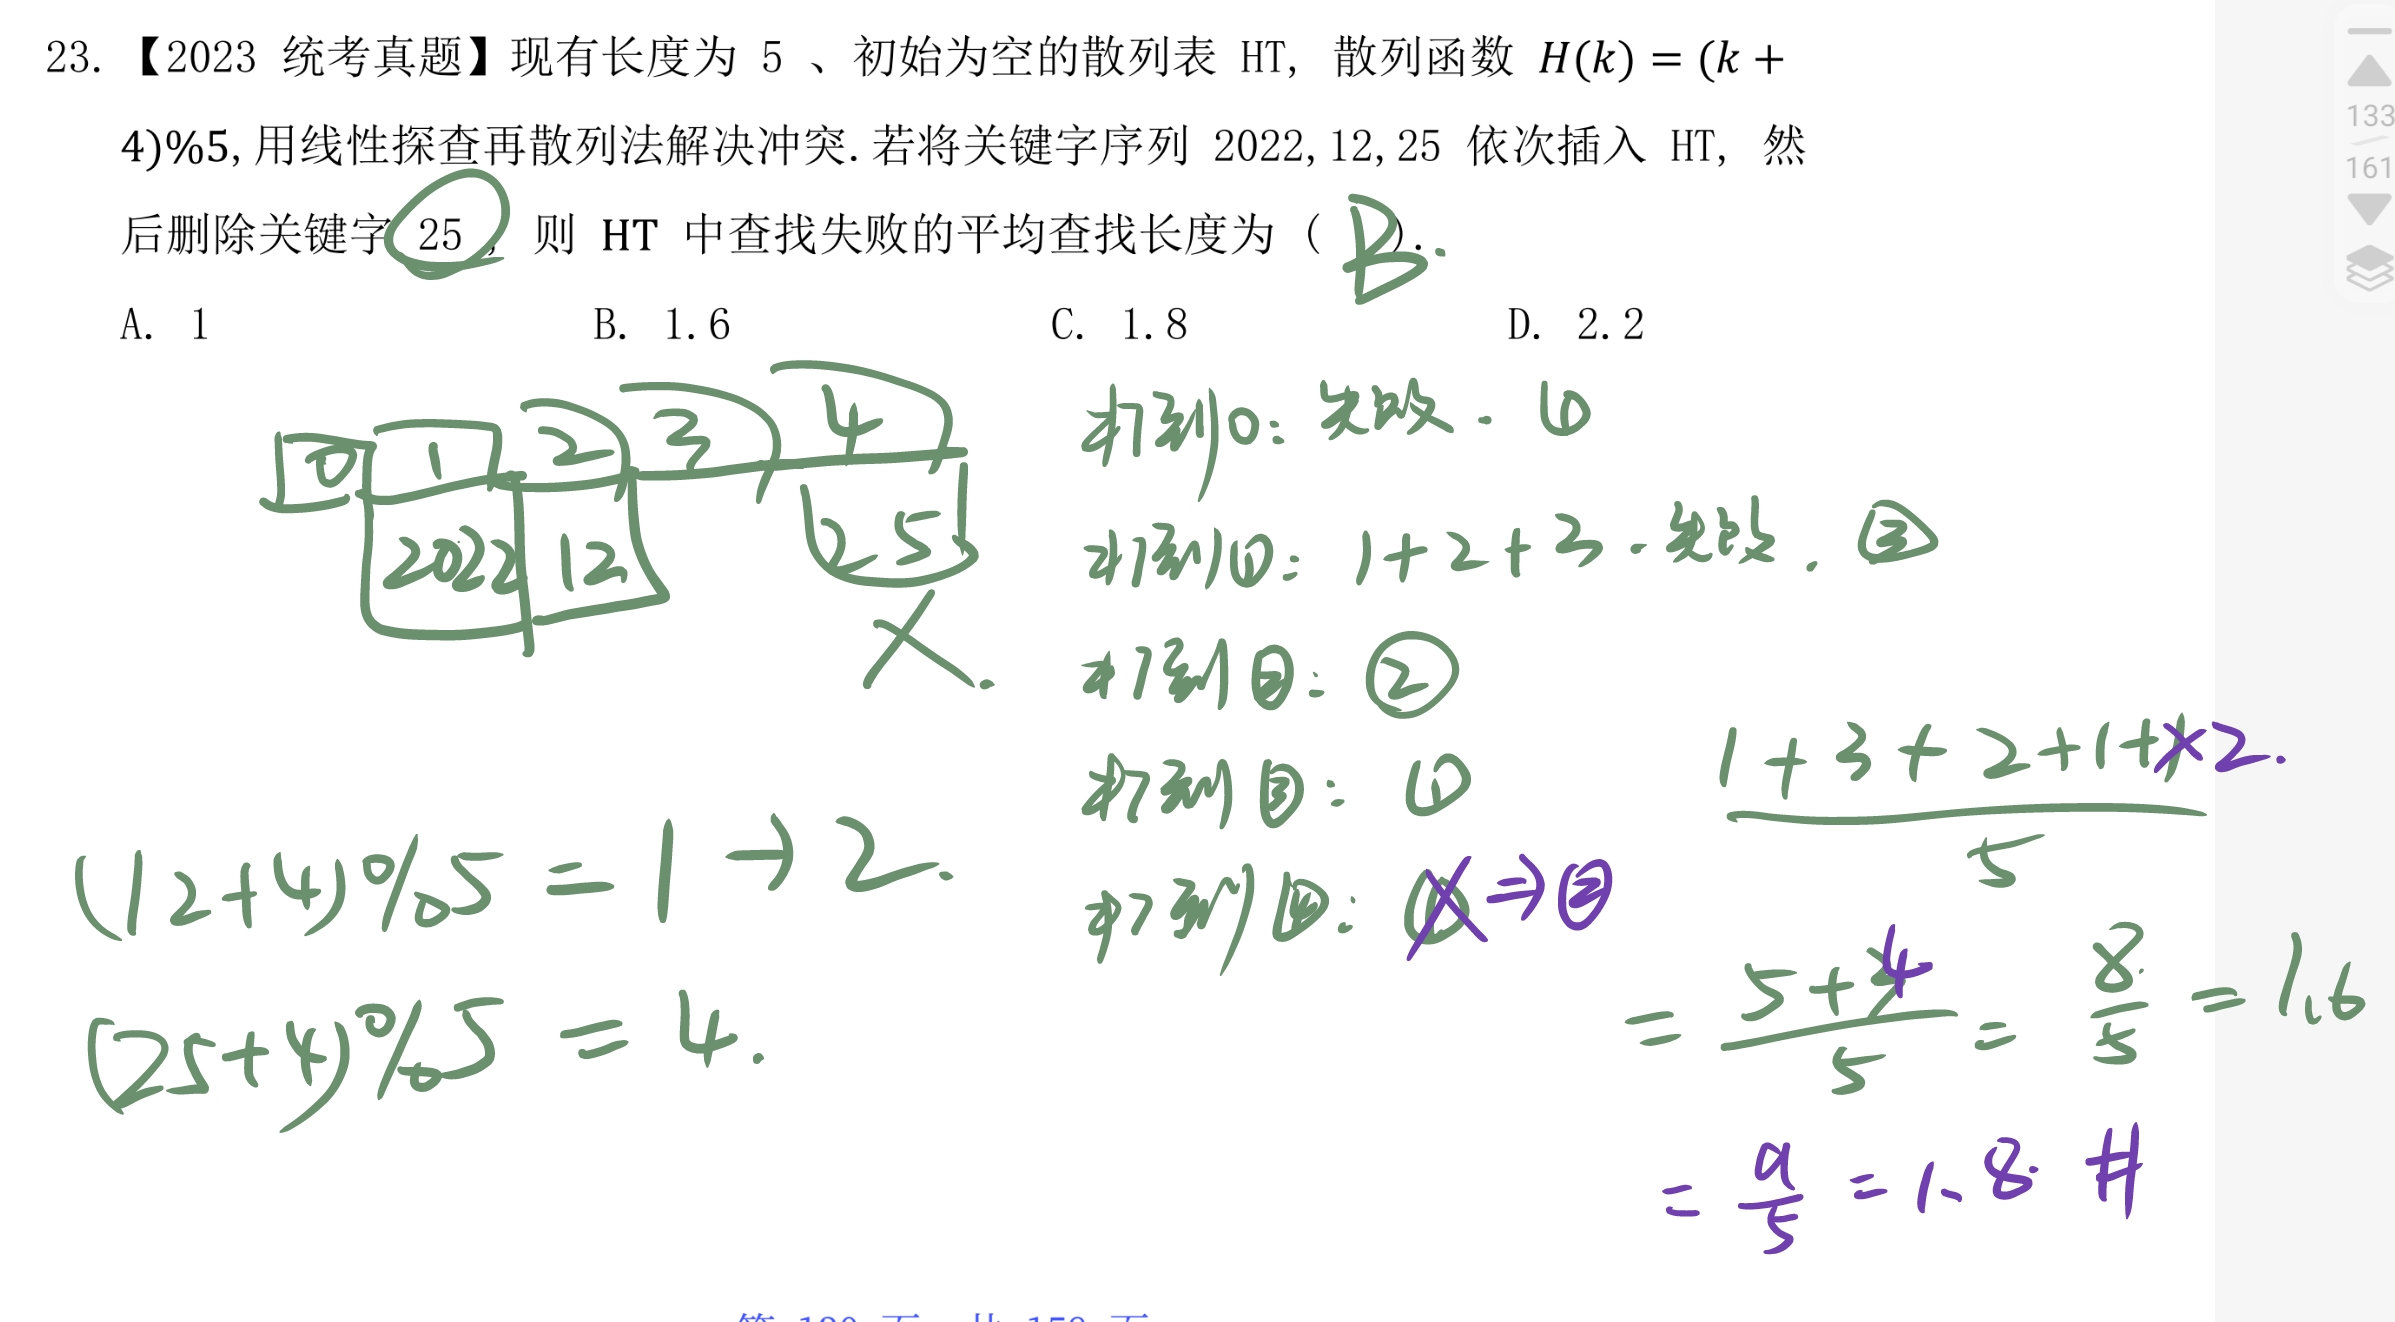 23. 【2023 统考真题】现有长度为 5 、初始为空的散列表 HT, 散列函数 H(k) = (k +
4)%5, 用线性探查再散列法解决冲突. 若将关键字序列 2022, 12, 25 依次插入 HT, 然
后删除关键字 25 , 则 HT 中查找失败的平均查找长度为 ( B ).
A. 1 B. 1.6 C. 1.8 D. 2.2
0 1 2 3 4
2022 12 25
X.
打到0: 失败. ①
打到①: 1+2+3. 失败. ③
打到②: ②
打到③: ①
打到④: ① X ⇒ ②
(12+4)%5 = 1 → 2.
(25+4)%5 = 4.
1+3+2+1+1 X 2.
5
= 5+4 = 8 = 1.6
5 5
= 9 = 1.8 #
5
133
161